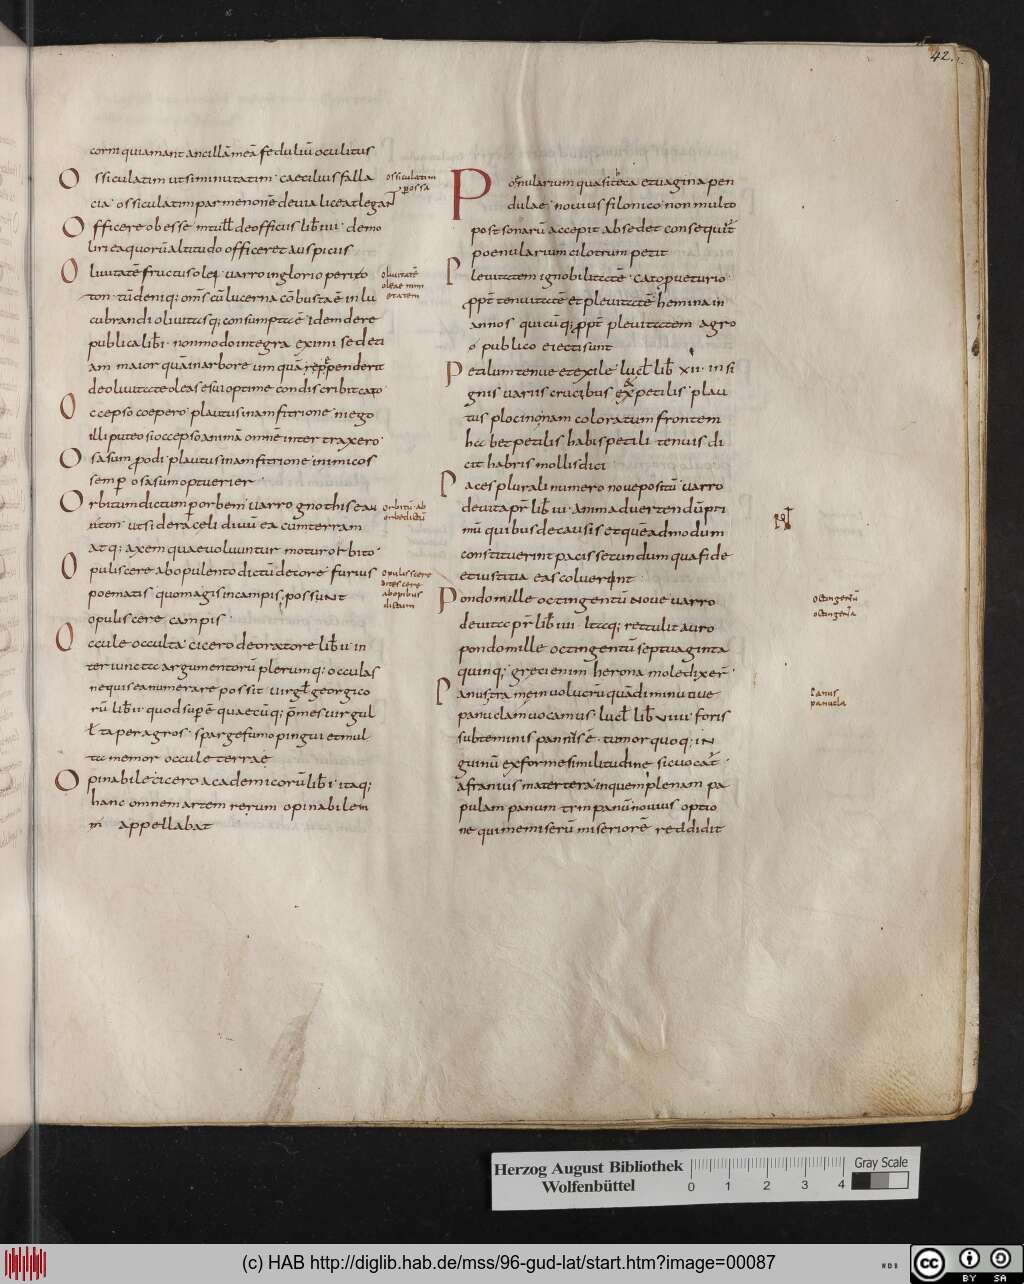 42.
corni quiamant ancillā meā feduliū oculitus
Ossiculatim utsiminutatim · caecilius falla
cia · ossiculatim parmenonē deuia liceat legar̄
Officere obesse · mtull̄ de officiis lib̄ iiii · demo
liri ea quorū altitudo officeret auspiciis
Oliuitatē fructus olei · uarro inglorio perito
ton · tū deniq; om̄s cū lucerna cōbustaē in lu
cubrandi oliuitasq; consumptaē · idem dere
publica lib̄ i · non modo integra eximi se deti
am maior quā in arbore · um quā reppenderit
de oliuitate oleas esui optime condi scribit cato ·
Occepso coepero · plautus inamfitrione · niego
illi puteo si occepso animā omnē inter traxero ·
Osasum podi · plautus inamfitrione · inimicos
semp̄ osasum optuerier ·
Orbitum dictum porbem · uarro gnothiseau
uton · utsi dera celi diuū ea cum terram
atq; axem quae uoluuntur motu orbito ·
Opuliscere ab opulento dictū detore · furius
poematis quo magis in campis possunt
opuliscere campis ·
Occule occulta · cicero de oratore lib̄ ii · in
ter iuncta argumentorū plerumq; occulas
nequis ea numerare possit · uirgl̄ georgico
rū lib̄ ii · quod supē quaecūq; p̄mes uirgul
ta per agros · sparge fimo pingui et mul
ta memor occule terrae
Opinabile · cicero academicorū lib̄ i · itaq;
hanc omnem artem rerum opinabilem
appellabat
ossiculatim
p ossa
oliuitatē
oleae mm
etatem
orbitū · ab
orbe dictū
opuliscere
ditescere
ab opibus
dictum
Poēnularium quasi theca et uagina pen
dulae · nouius filonico · non multo
post sonarū accepit absedet consequit̄
poenularium cilotrum petit
Pleuitatem ignobilitatē · cato pueturio ·
p̄pt̄ tenuitatē et pleuitatē hemina in
annos quicūq; p̄pt̄ pleuitatem agro
o publico eiecti sunt
Petilum tenue et exile · lucl̄ lib̄ xii · insi
gnis uariis cruribus et petilis · plau
tus plocinonam coloratum frontem
habet petilis habis petili tenuis di
cit habris mollis dici ·
Paces plurali numero noue positū · uarro
deuita pr̄ lib̄ iii · animaduertendū pri
mū quibus de causis et quē admodum
constituerint pacis secundum qua fide
et iustitia eas coluerint ·
Pondo mille octingentū noue uarro
deuita pr̄ lib̄ iiii · itaq; rettulit auro
pondo mille octingentū septuaginta
quinq; greci enim herona mole dixer̄ ·
Panus tramein uolucrū quā diminutiue
panuclam uocamus · lucl̄ lib̄ uiiii · foris
subteminis panus ē · tumor quoq; in
guinū ex forme similitudine sic uocat̄ ·
afranius matertera · inquem plenam pa
pulam panum · trmpanū nouius optio
ne · qui me miserū miseriorē reddidit
octingentū
octingenta
Panus
panucla
Herzog August Bibliothek
Wolfenbüttel
0 1 2 3 4
Gray Scale
(c) HAB http://diglib.hab.de/mss/96-gud-lat/start.htm?image=00087
WDB
cc BY SA